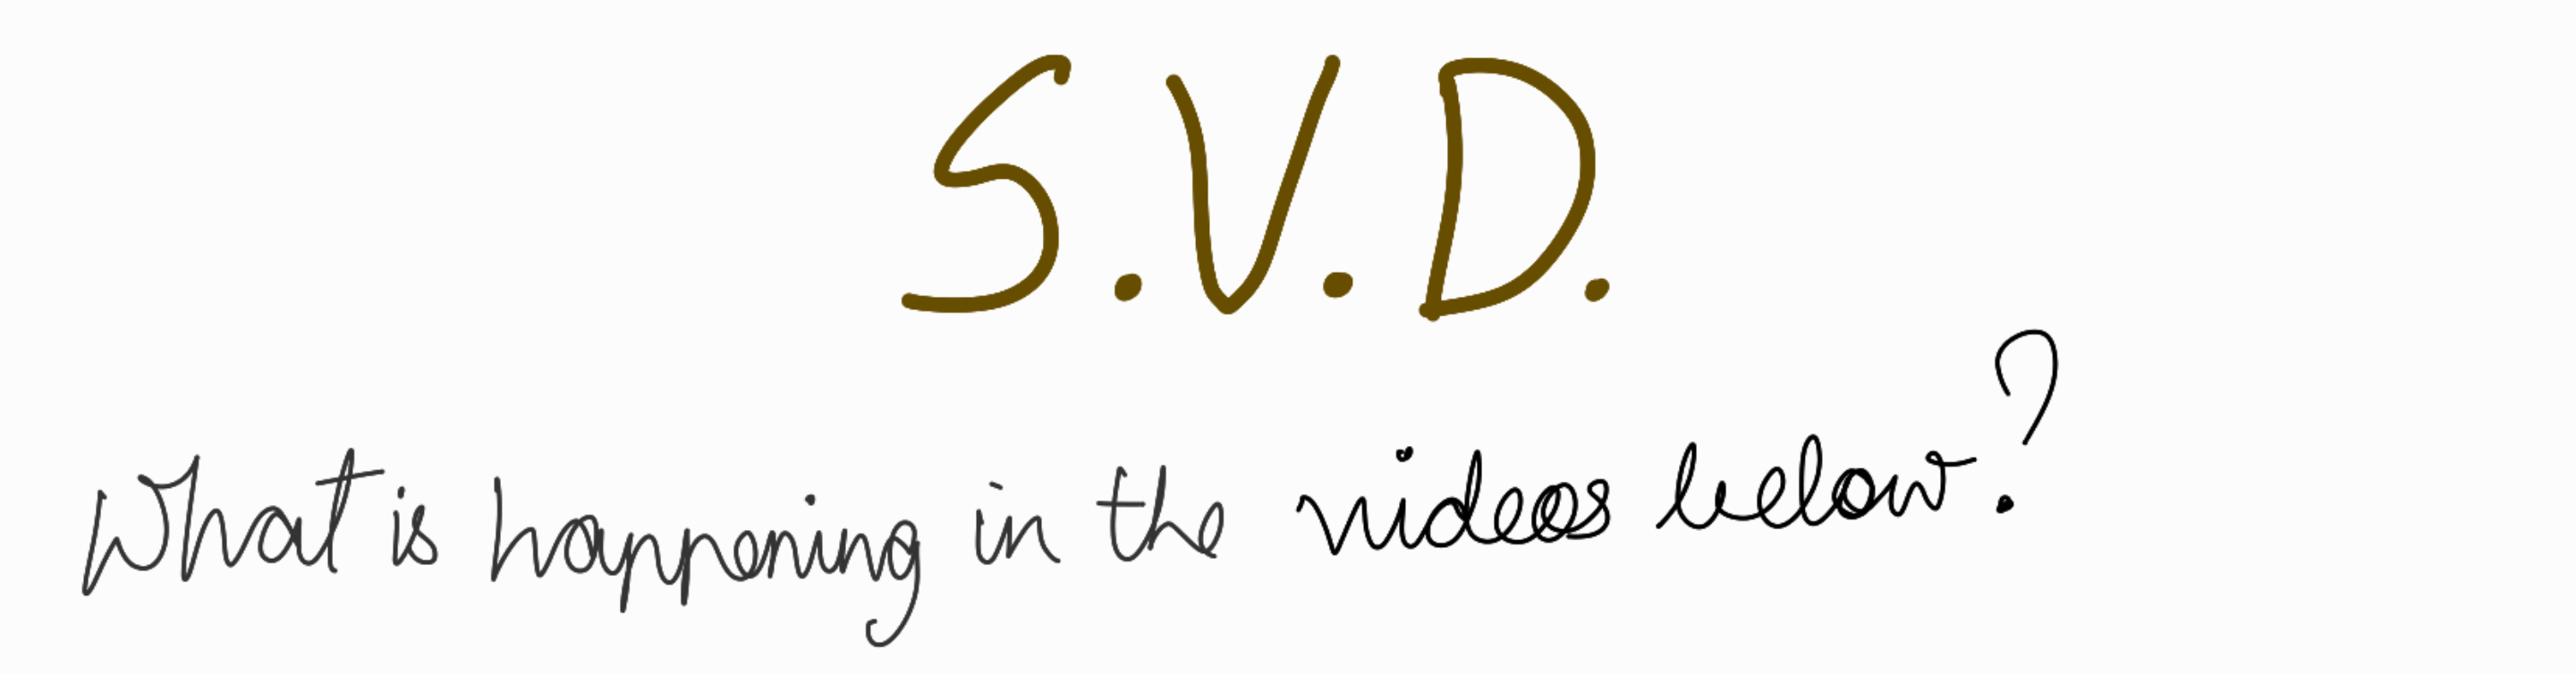 S.V.D.
What is happening in the videos below?